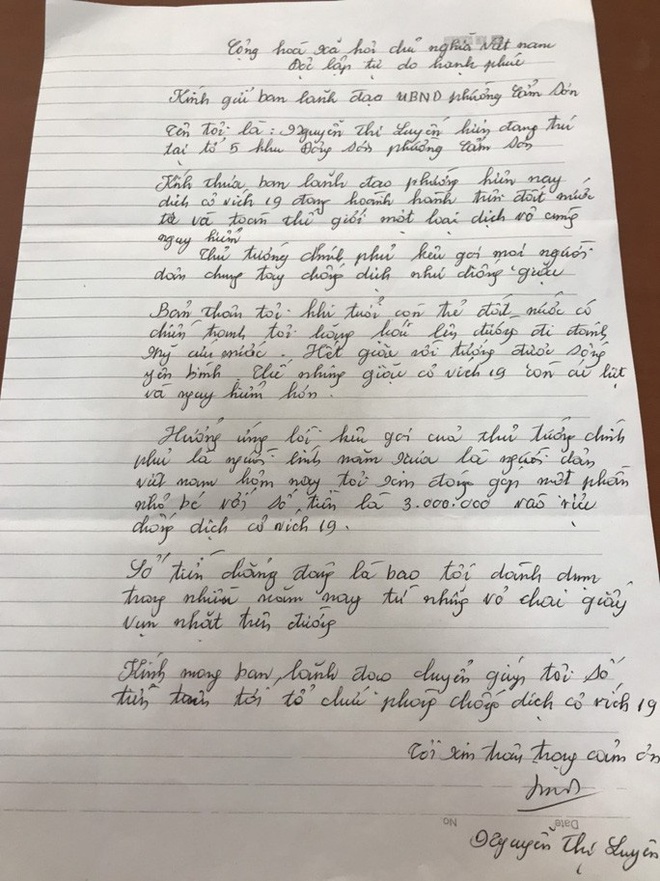 Cộng hoà xã hội chủ nghĩa Việt nam
Độc lập tự do hạnh phúc
Kính gửi ban lãnh đạo UBND phường Cẩm Sơn
Tên tôi là : Nguyễn Thị Luyến hiện đang trú
tại tổ 5 khu Đông Sơn phường Cẩm Sơn
Kính thưa ban lãnh đạo phường hiện nay
dịch cô vích 19 đang hoành hành trên đất nước
ta và toàn thế giới một loại dịch vô cùng
nguy hiểm
Thủ tướng chính phủ kêu gọi mọi người
dân chung tay chống dịch như chống giặc
Bản thân tôi khi tuổi còn trẻ đất nước có
chiến tranh tôi hăng hái lên đường đi đánh
Mỹ cứu nước. Hết giặc rồi tưởng được sống
yên bình thế nhưng giặc cô vích 19 còn ác liệt
và nguy hiểm hơn.
Hưởng ứng lời kêu gọi của thủ tướng chính
phủ là người lính năm xưa là người dân
việt nam hôm nay tôi xin đóng góp một phần
nhỏ bé với số tiền là 3.000.000 vào việc
chống dịch cô vích 19.
Số tiền chẳng đáng là bao tôi dành dụm
trong nhiều năm nay từ những vỏ chai giấy
vụn nhặt trên đường
Kính mong ban lãnh đạo chuyển giúp tôi số
tiền trên tới tổ chức phòng chống dịch cô vích 19
Tôi xin trân trọng cảm ơn
Date No
Nguyễn Thị Luyến